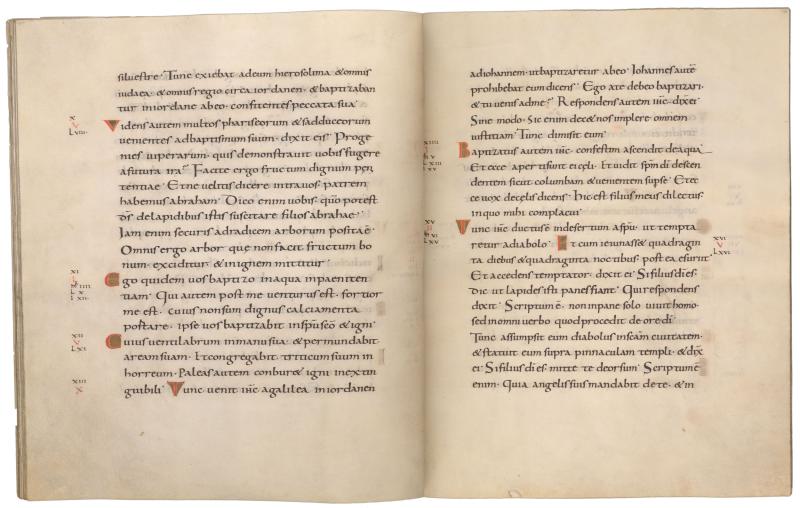 silvestre · Tunc exiebat adeum hierosolima & omnis
iudaea · & omnis regio circa iordanen · & baptizaban
tur iniordane abeo · confitentes peccata sua ·
X
V
LVIII
Videns autem multos phariseorum & sadduceorum
uenientes adbaptismum suum · dixit eis · Proge
nies uiperarum · quis demonstrauit uobis fugere
afutura ira · Facite ergo fructum dignum peni
tentiae · Et ne uelitis dicere intrauos · patrem
habemus abraham · Dico enim uobis · quō potest
dś delapidibus istis suscitare filios abrahae ·
Iam enim securis adradicem arborum posita ē ·
Omnis ergo arbor que nonfacit fructum bo
num · exciditur · & inignem mittitur ·
XI
Ego quidem uos baptizo inaqua inpaeniten
tiam · Qui autem post me uenturus est · fortior
me est · cuius nonsum dignus calciamenta
portare · ipse uos baptizabit inspūsco · & igni ·
XII
V
LXI
Cuius uentilabrum inmanu sua · & permundabit
aream suam · Et congregabit triticum suum in
horreum · Paleas autem conbur& igni inextin
XIII
X
guibili · Tunc uenit ihc agalilea iniordanen
adiohannem · utbaptizaretur abeo · Iohannes autē
prohibebat eum dicens · Ego ate debeo baptizari ·
& tu uenis adme · Respondens autem ihc · dixit ei ·
Sine modo · Sic enim dec& nos implere omnem
iustitiam · Tunc dimisit eum ·
XIIII
Baptizatus autem ihc · confestim ascendit deaqua ·
Et ecce aperti sunt ei cęli · Et uidit spm di descen
dentem sicut columbam & uenientem supse · Et ec
ce uox decęlis dicens · hic est filius meus dilectus ·
inquo mihi complacui ·
XV
II
LXV
Tunc ihc ductus ē indesertum aspū · ut tempta
retur adiabolo · Et cum ieiunass& quadragin
XVI
V
LXVI
ta diebus & quadraginta noctibus · postea esuriit ·
Et accedens temptator · dixit ei · Si filius di es ·
dic ut lapides isti panes fiant · Qui respondens
dixit · Scriptum ē · non inpane solo uiuit homo ·
sed inomni uerbo quod procedit de ore di ·
Tunc assumpsit eum diabolus inscam ciuitatem ·
& statuit eum supra pinnaculum templi · & dix
ei · Si filius di es · mitte te deorsum · Scriptum ē
enim · Quia angelis suis mandabit dete · & in